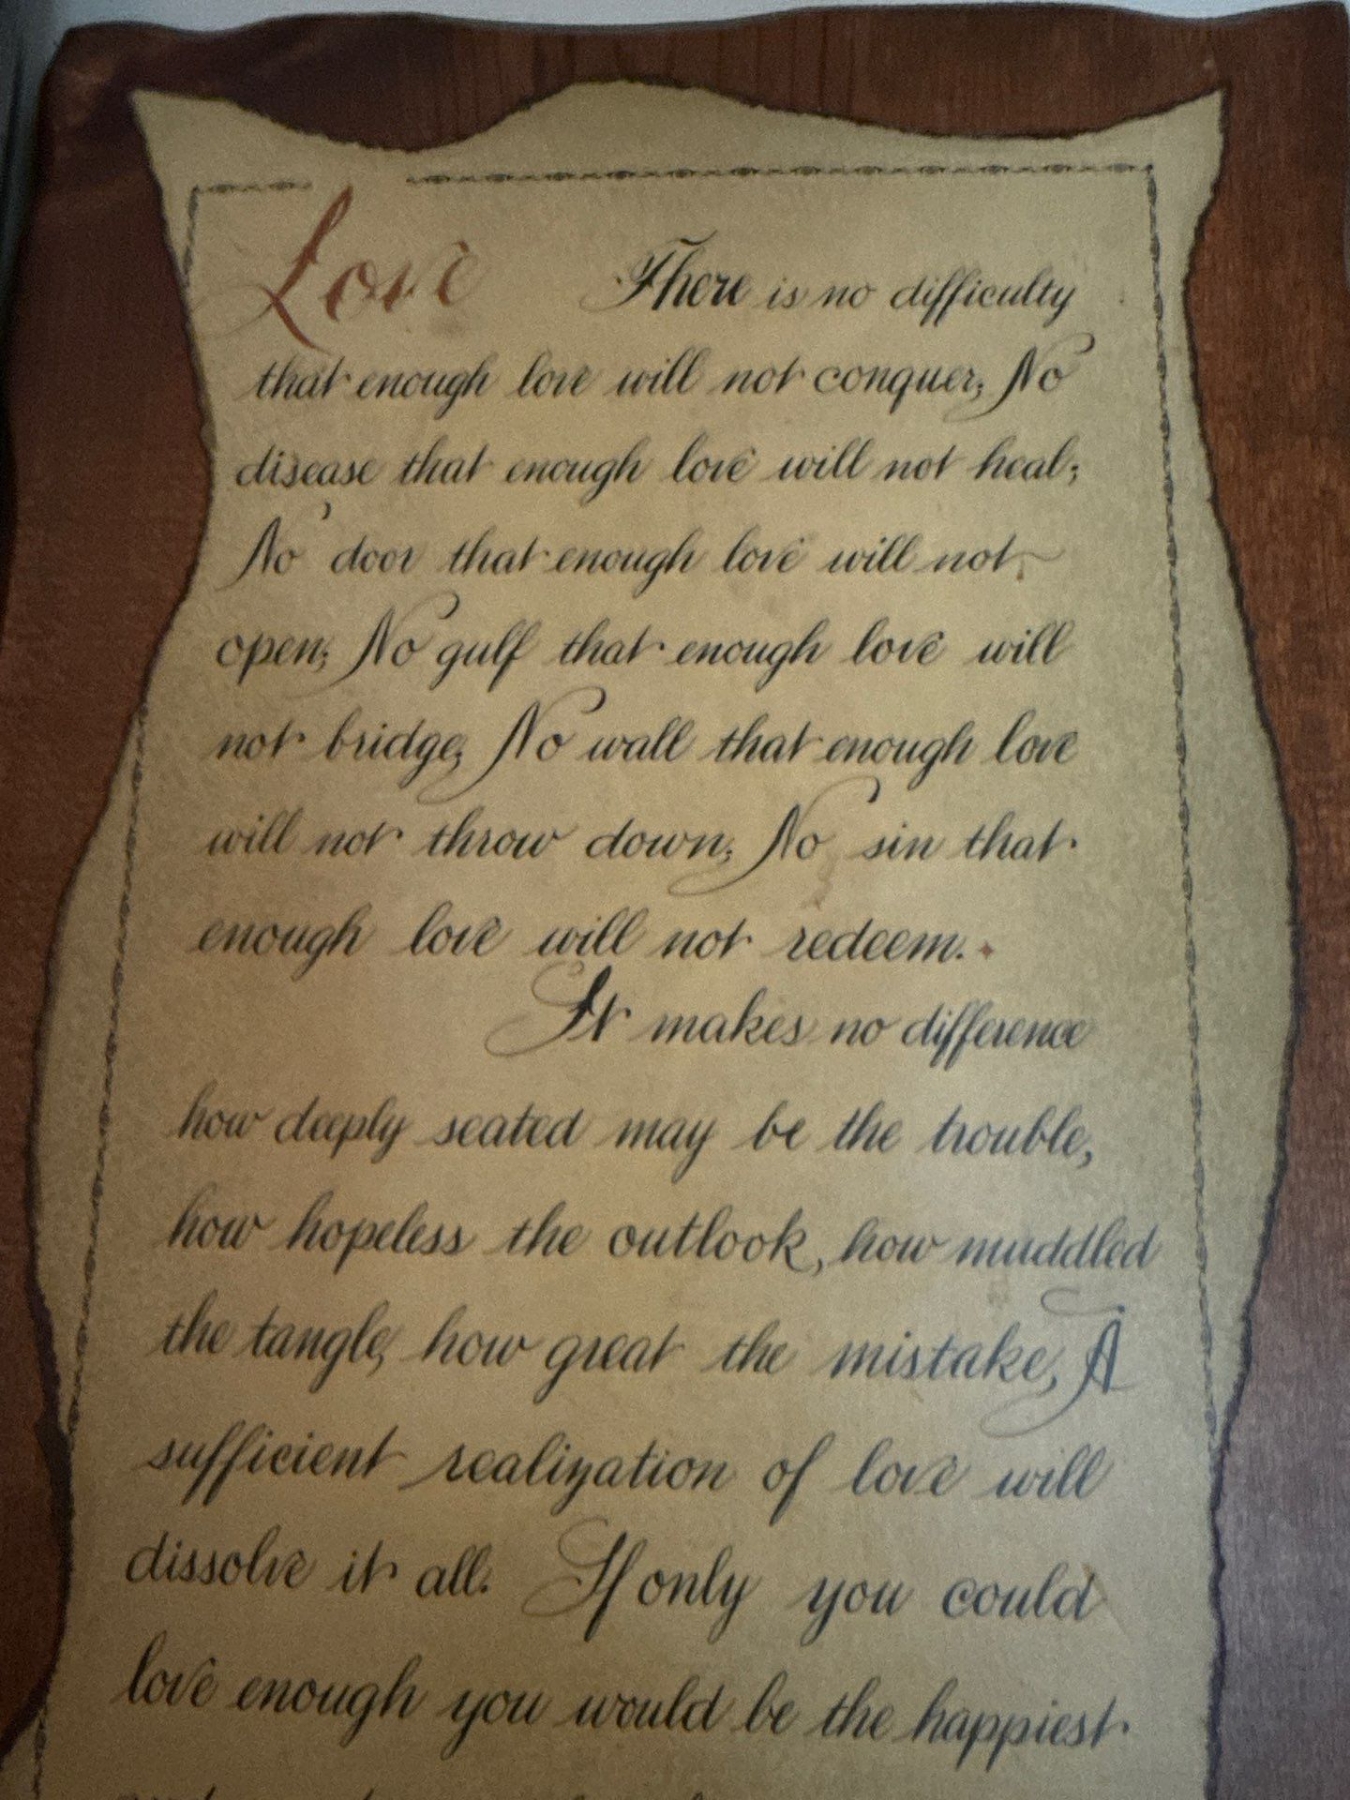 Love There is no difficulty
that enough love will not conquer; No
disease that enough love will not heal;
No door that enough love will not
open; No gulf that enough love will
not bridge; No wall that enough love
will not throw down; No sin that
enough love will not redeem.
It makes no difference
how deeply seated may be the trouble,
how hopeless the outlook, how muddled
the tangle, how great the mistake, A
sufficient realization of love will
dissolve it all. If only you could
love enough you would be the happiest